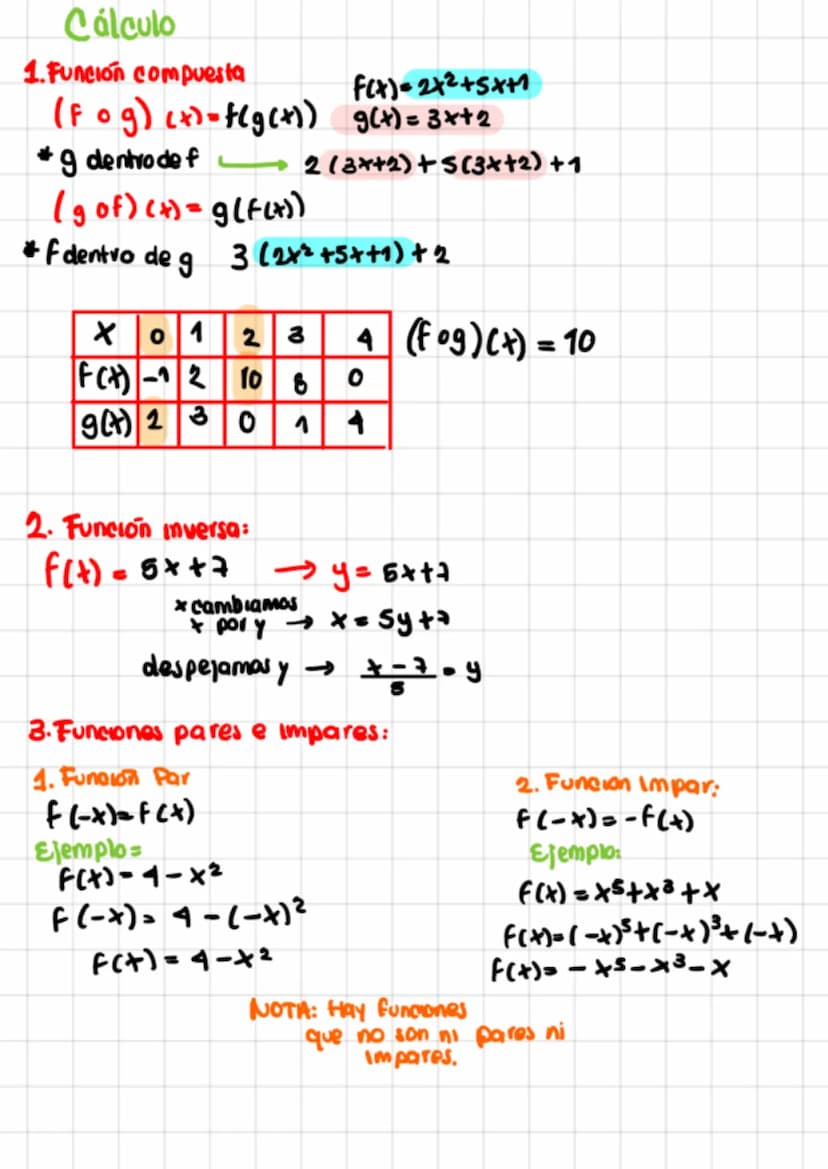 Cálculo
1. Función compuesta
f(x) = 2x²+5x+1
(f o g) (x) = f(g(x))
g(x) = 3x+2
* g dentro de f → 2 (3x+2) + 5(3x+2) + 1
(g of) (x) = g(f(x))
* f dentro de g 3 (2x² +5x+1) + 2
x 0 1 2 3 4
(f og)(x) = 10
f(x) -1 2 10 8 0
g(x) 2 3 0 1 4
2. Función inversa:
f(x) = 5x+7 → y = 5x+7
* cambiamos
x por y → x = 5y+7
despejamos y → x-7/5 = y
3. Funciones pares e impares:
1. Función Par
f(-x)=f(x)
Ejemplo=
f(x) = 4-x²
f(-x) = 4-(-x)²
f(x) = 4-x²
2. Función Impar:
f(-x) = -f(x)
Ejemplo:
f(x) = x⁵+x³+x
f(x)=(-x)⁵+(-x)³+(-x)
f(x)= -x⁵-x³-x
NOTA: Hay funciones
que no son ni pares ni
impares.